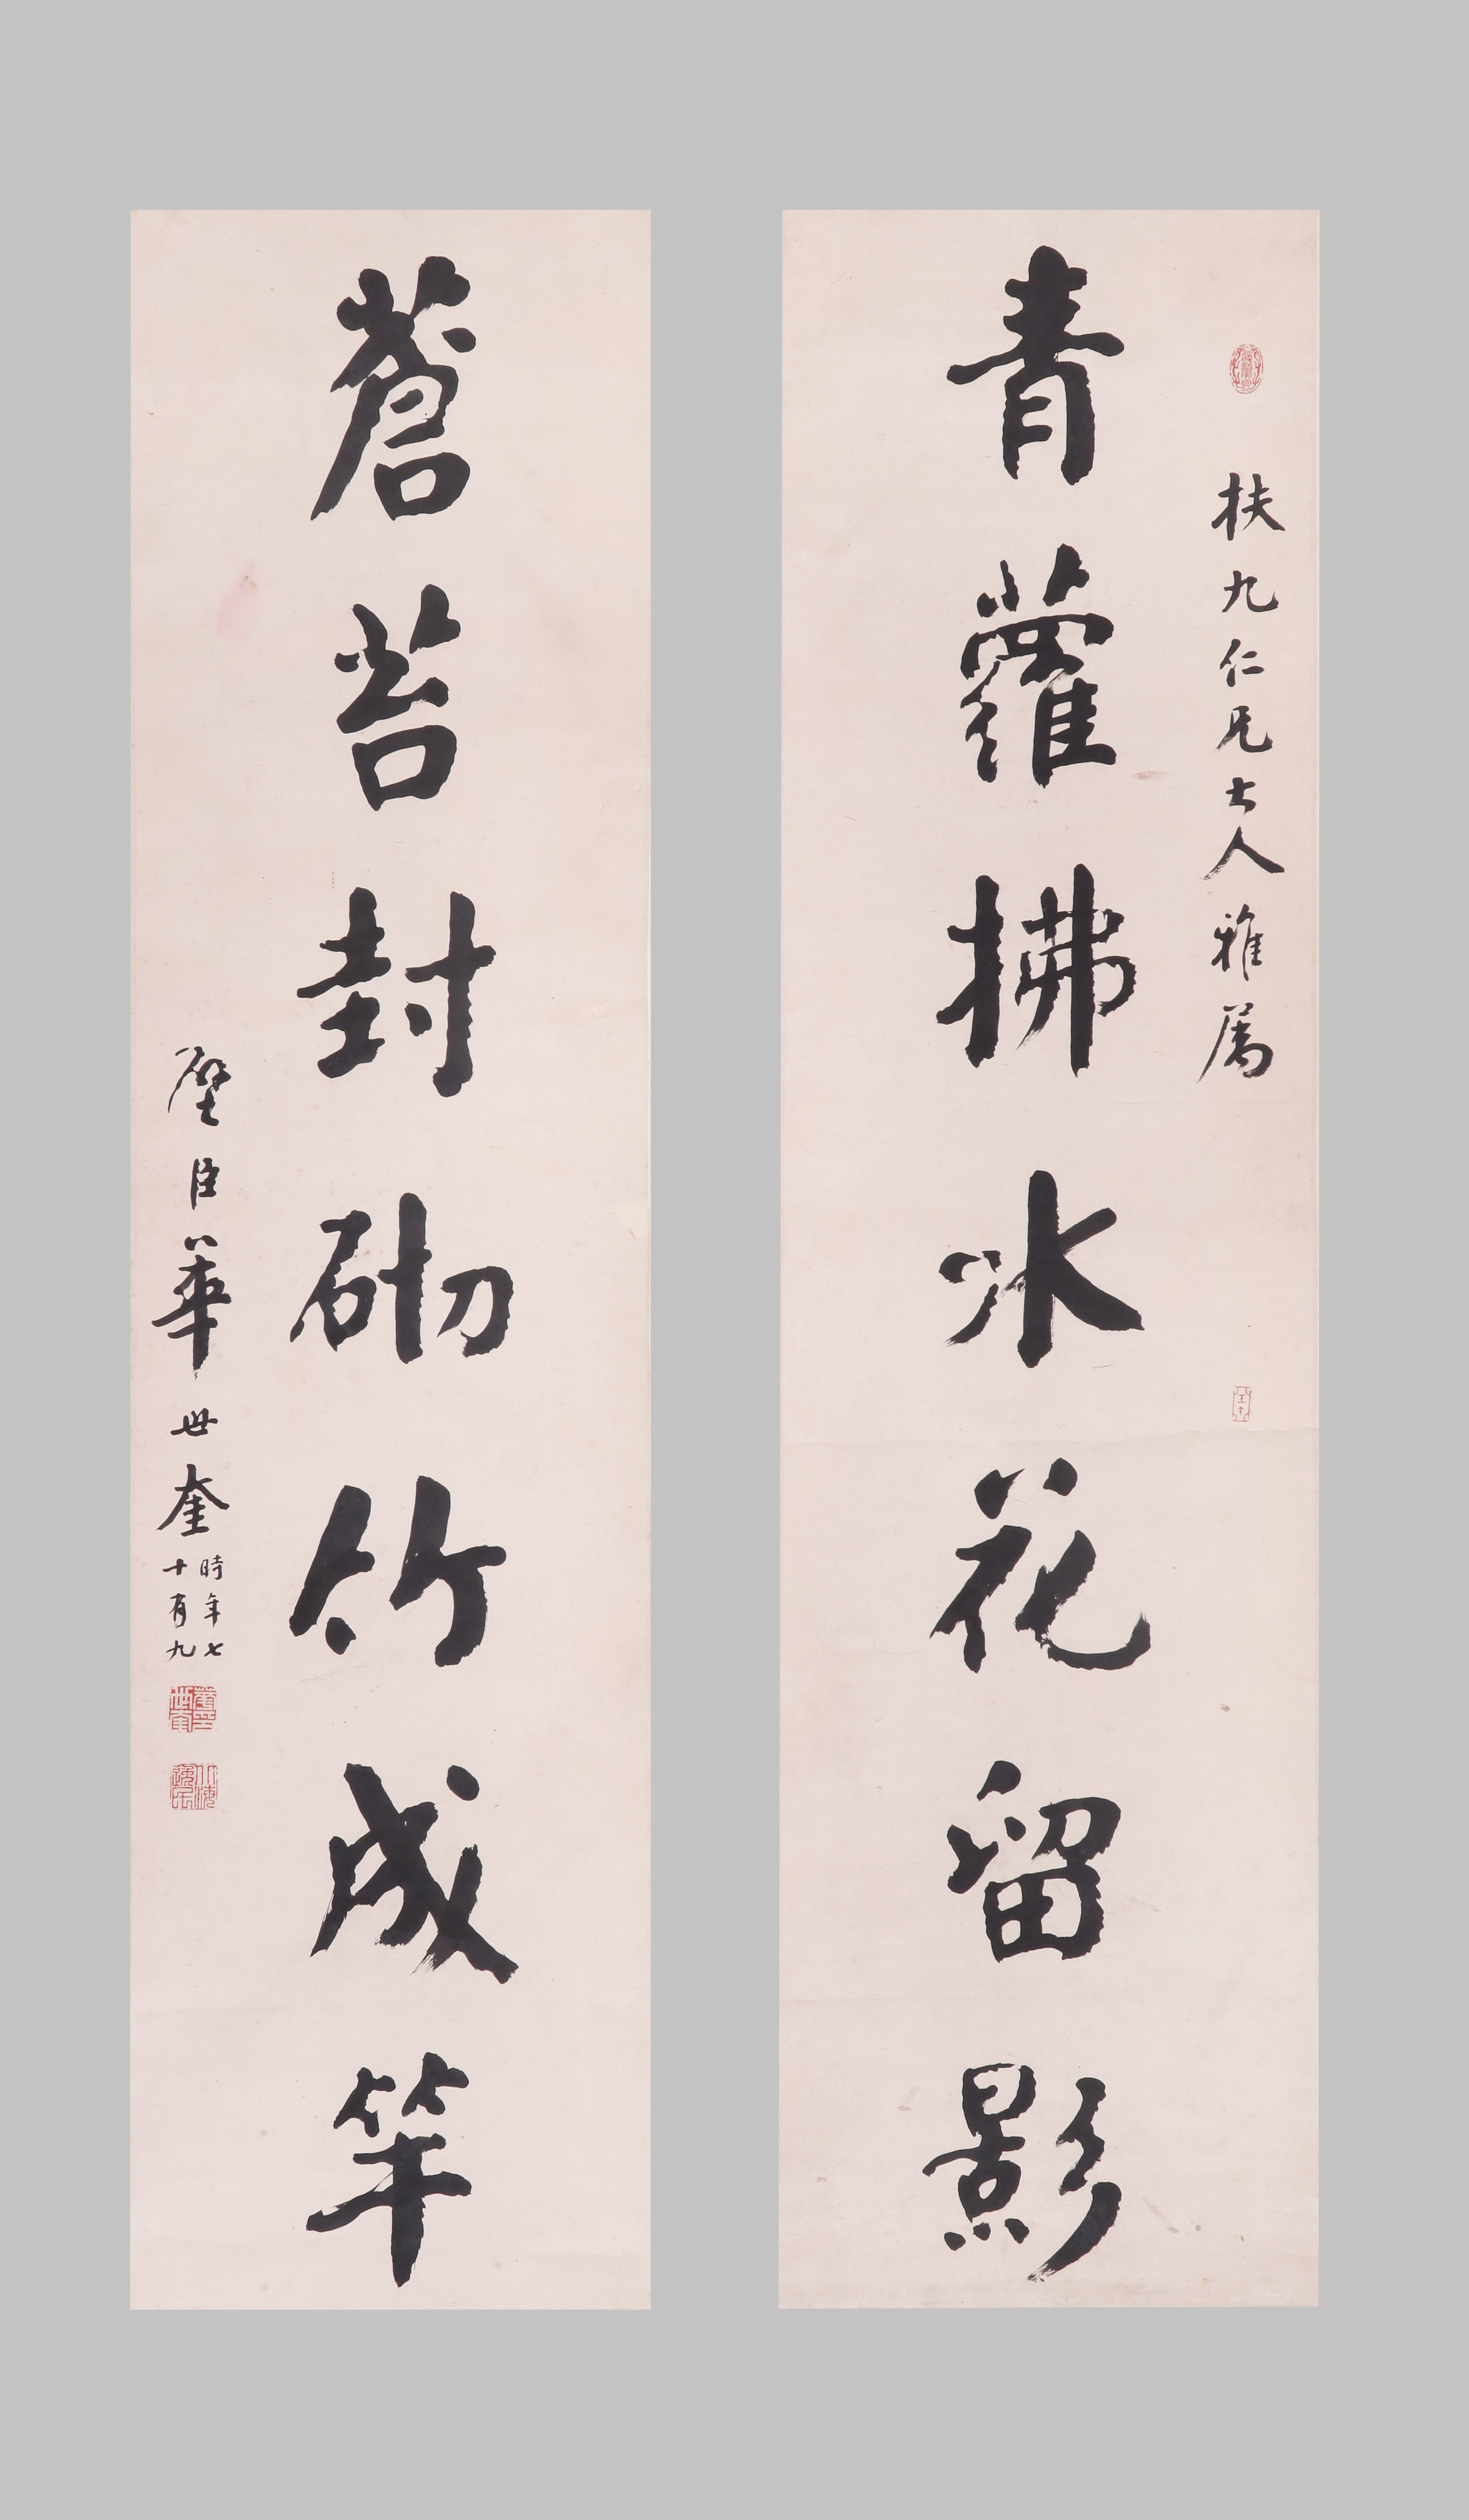 扶九仁兄大人雅属
青蘿拂水花留影
蒼苔封砌竹成竿
壁臣華世奎
時年七
十有九